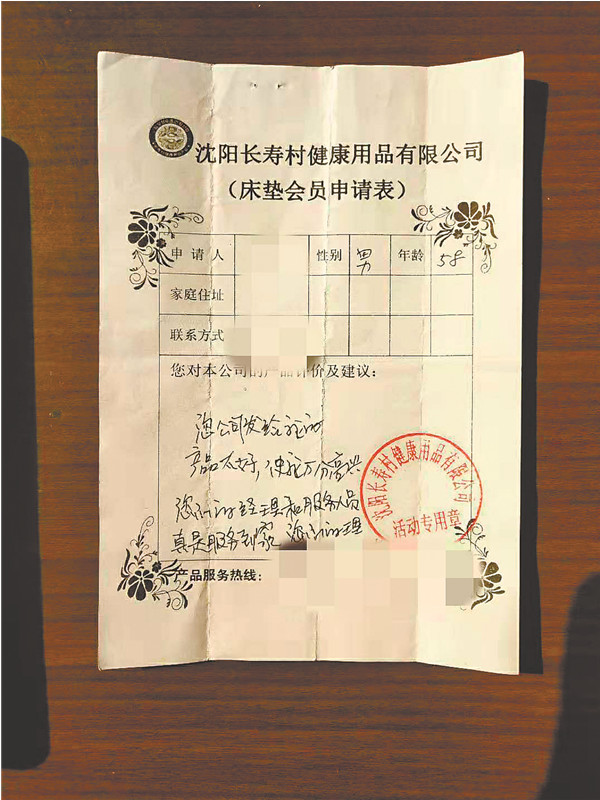 沈阳长寿村健康用品有限公司
（床垫会员申请表）
申请人 性别 男 年龄 58
家庭住址
联系方式
您对本公司的产品评价及建议：
您公司发给我的
产品太好，使我万分高兴
您公司的经理和服务人员
真是服务到家
沈阳长寿村健康用品有限公司
活动专用章
产品服务热线：